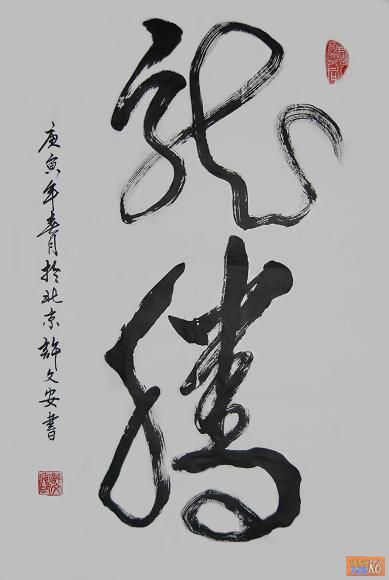 龙腾
庚寅年春月於北京許文安書
K6